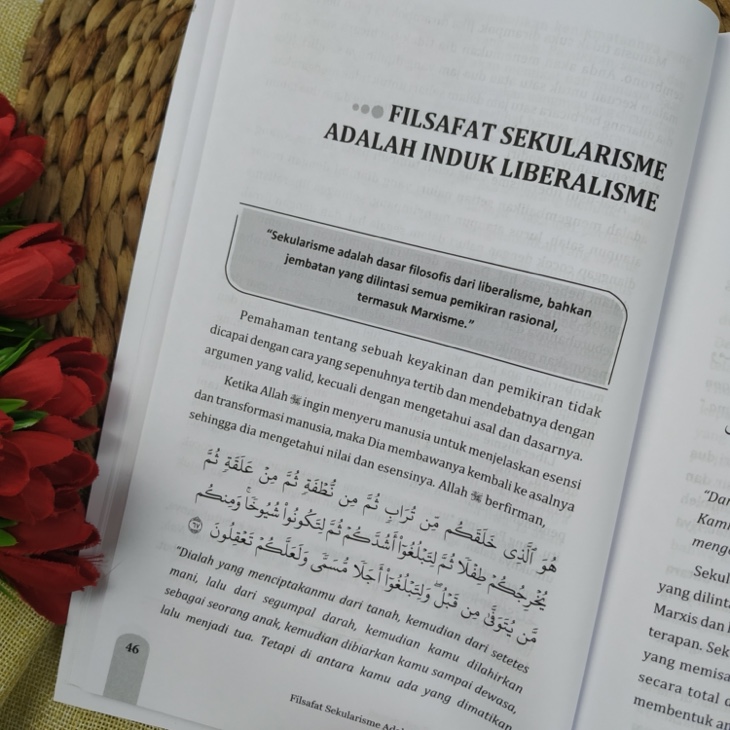 FILSAFAT SEKULARISME
ADALAH INDUK LIBERALISME
"Sekularisme adalah dasar filosofis dari liberalisme, bahkan
jembatan yang dilintasi semua pemikiran rasional,
termasuk Marxisme."
Pemahaman tentang sebuah keyakinan dan pemikiran tidak
dicapai dengan cara yang sepenuhnya tertib dan mendebatnya dengan
argumen yang valid, kecuali dengan mengetahui asal dan dasarnya.
Ketika Allah ﷻ ingin menyeru manusia untuk menjelaskan esensi
dan transformasi manusia, maka Dia membawanya kembali ke asalnya
sehingga dia mengetahui nilai dan esensinya. Allah ﷻ berfirman,
هُوَ ٱلَّذِى خَلَقَكُم مِّن تُرَابٍ ثُمَّ مِن نُّطْفَةٍ ثُمَّ مِنْ عَلَقَةٍ ثُمَّ
يُخْرِجُكُمْ طِفْلًا ثُمَّ لِتَبْلُغُوٓا۟ أَشُدَّكُمْ ثُمَّ لِتَكُونُوا۟ شُيُوخًا ۚ وَمِنكُم
مَّن يُتَوَفَّىٰ مِن قَبْلُ ۖ وَلِتَبْلُغُوٓا۟ أَجَلًا مُّسَمًّى وَلَعَلَّكُمْ تَعْقِلُونَ ٦٧
"Dialah yang menciptakanmu dari tanah, kemudian dari setetes
mani, lalu dari segumpal darah, kemudian kamu dilahirkan
sebagai seorang anak, kemudian dibiarkan kamu sampai dewasa,
lalu menjadi tua. Tetapi di antara kamu ada yang dimatikan
46
Filsafat Sekularisme
"Dar
Kami
menge
Sekul
yang dilint
Marxis dan
terapan. Sek
yang memisa
secara total d
membentuk an